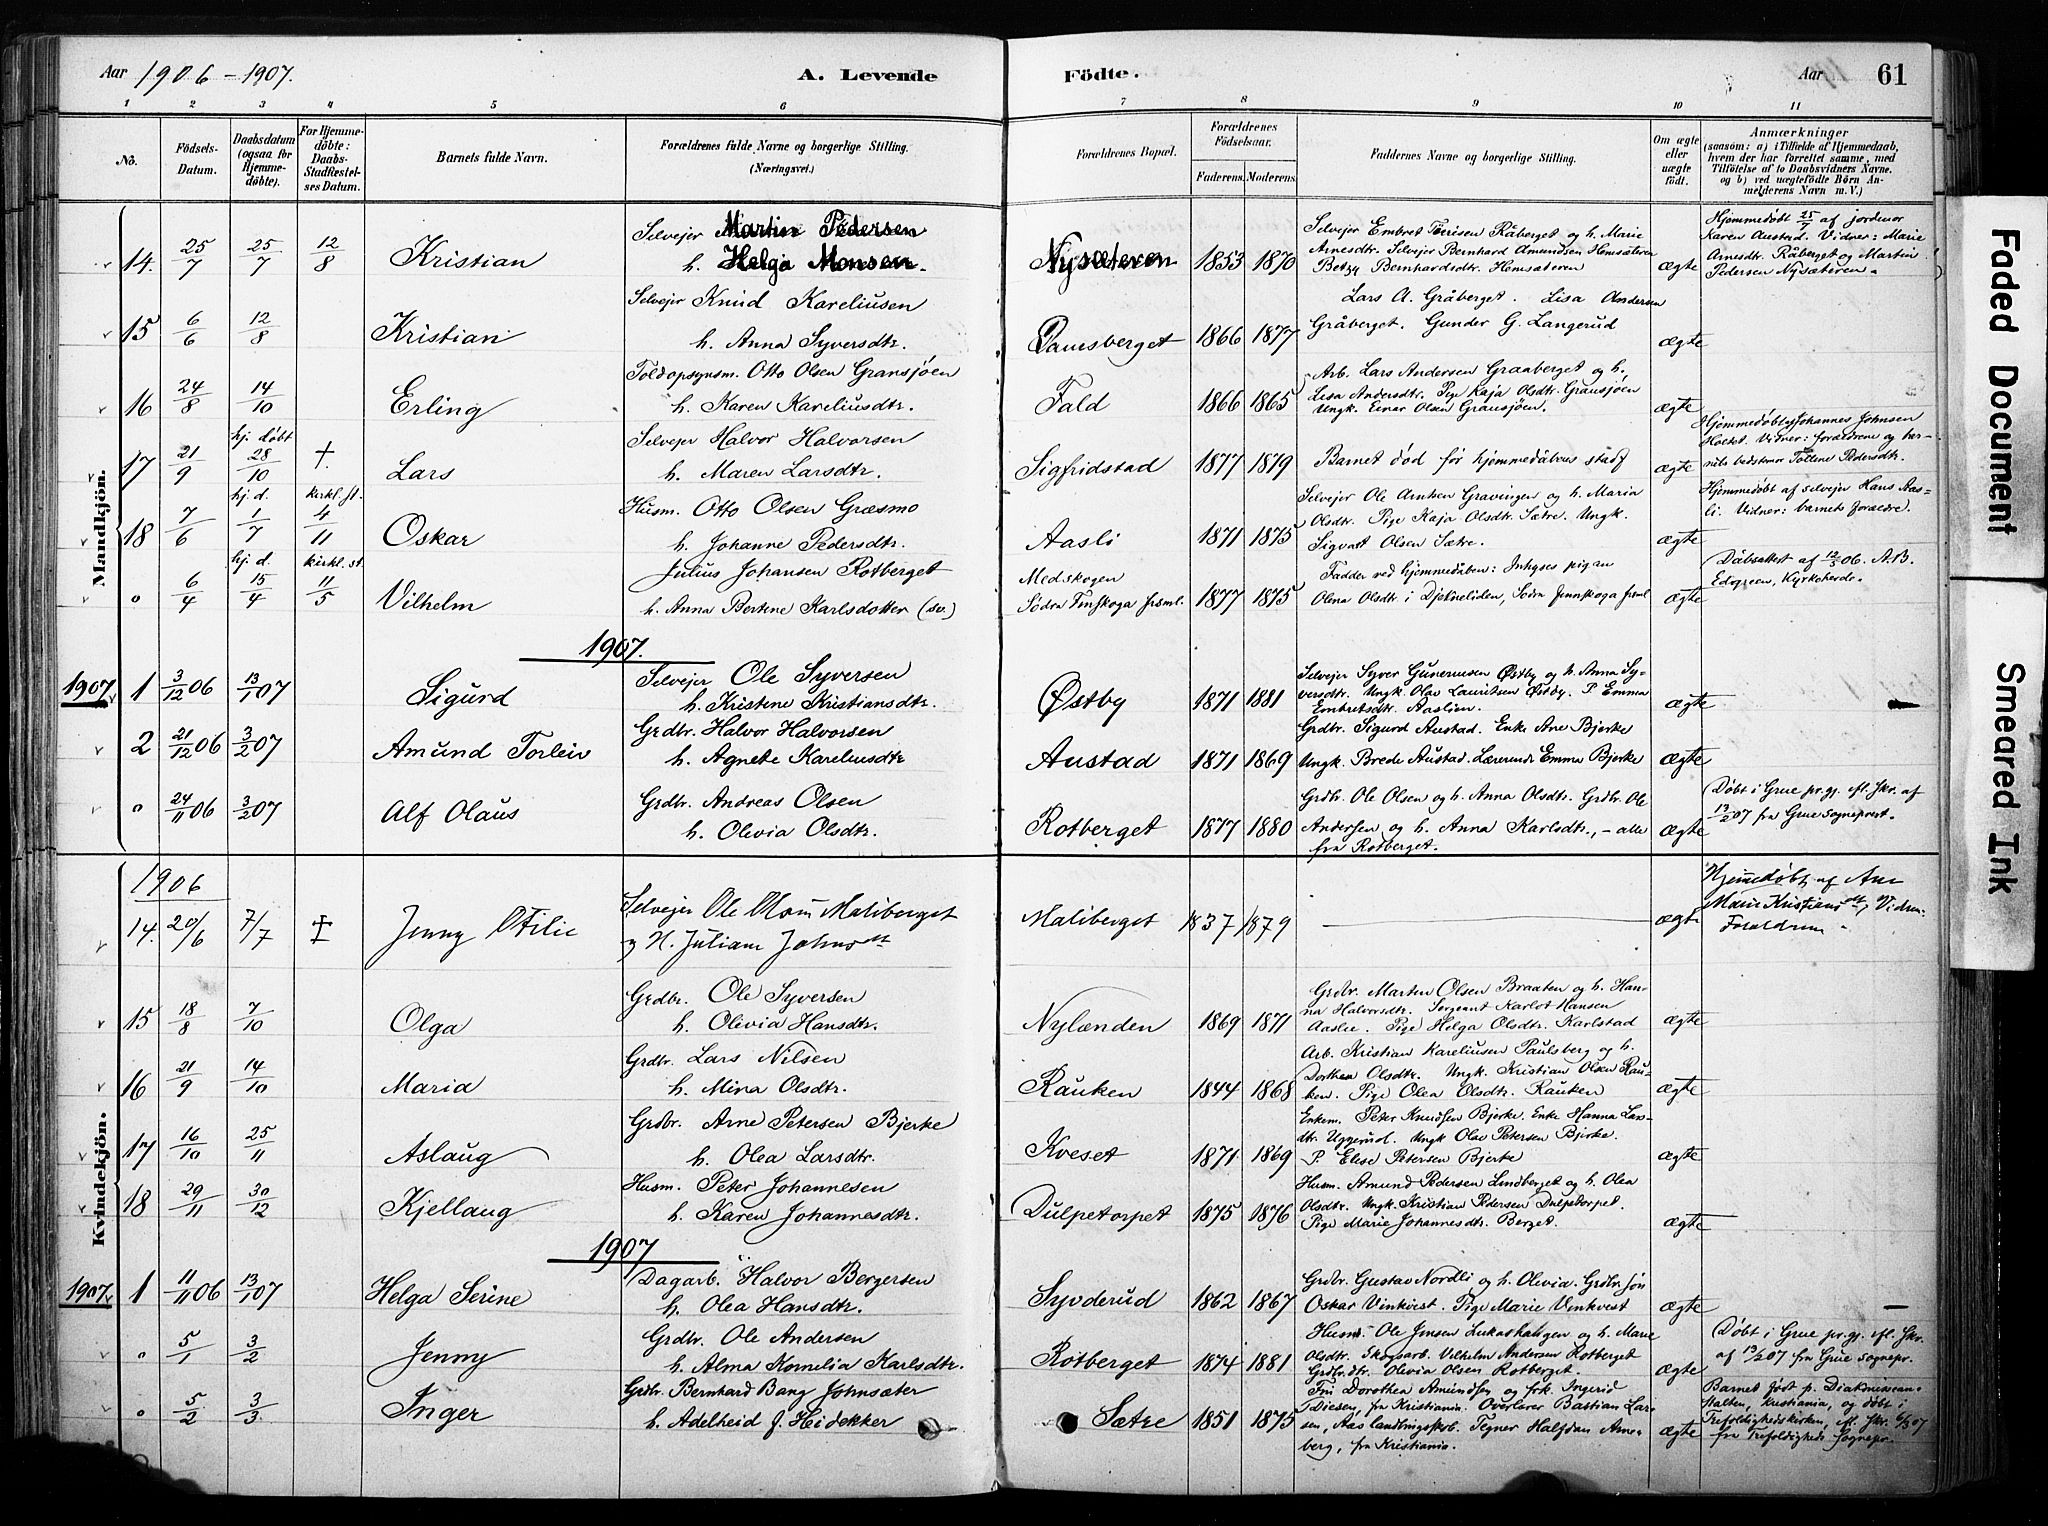 Aar 1906-1907.
A. Levende
Födte.
Aar
61
1 2 3 4 5 6 7 8 9 10 11
No.
Födsels-
Datum.
Daabsdatum
(ogsaa for
Hjemme-
døbte).
For Hjemme-
døbte:
Daabs-
Stadfestel-
ses Datum.
Barnets fulde Navn.
Forældrenes fulde Navne og borgerlige Stilling.
(Næringsvei.)
Forældrenes Bopæl.
Forældrenes
Födselsaar.
Faderens. Moderens.
Faddernes Navne og borgerlige Stilling.
Om ægte
eller
uægte
födt.
Anmærkninger
(saasom: a) i Tilfælde af Hjemmedaab,
hvem der har forrettet samme, med
Tilföielse af to Daabsvidners Navne.
og b) ved uægtefödte Börn An-
melderens Navn m. V.)
Mandkjön.
14. 25/7 25/7 12/8 Kristian
Selvejer Martin Pedersen
h. Helga Monsen.
Nysæteren 1853 1870
Selvejer Embret Råberget og h. Marie
Arnesdtr. Selvejer Bernhard Amundsen Hemsæteren
Betzy Bernhardsdtr. Hemsæteren
ægte
Hjemmedøbt 25/7 af jordmor
Karen Austad. Vidner: Marie
Arnesdtr. Råberget og Martin
Pedersen Nysæteren.
15 6/6 12/8 Kristian
Selvejer Knud Kareliusen
h. Anna Syversdtr.
1866 1877
Lars A. Gråberget. Lisa Andersen
Gråberget. Gunder G. Langerud
ægte
16 24/8 14/10 Erling
Toldopsynsm. Otto Olsen Gransjøen
h. Karen Kareliusdtr.
Fald 1866 1865
Arb. Lars Andersen Graaberget og h.
Lisa Andersdtr. Pige Kaja Olsdtr. Gransjøen
Ungk. Einar Olsen Gransjøen.
ægte
17 21/9 hj. døbt 28/10 †. Lars
Selvejer Halvor Halvorsen
h. Maren Larsdtr.
Sigfridstad 1877 1879
Barnet død før hjemmedåbens stadf
ægte
Hjemmedøbt Johannes Johnsen
Vidner: forældrene og bar-
nets bedstemor Pedersdtr.
18 7/6 hj. d. 1/7 kirkl. st. 4/11 Oskar
Husm. Otto Olsen Græsmo
h. Johanne Pedersdtr.
Aasli 1871 1875
Selvejer Ole Gravingen og h. Maria
Olsdtr. Pige Kaja Olsdtr. Sætre. Ungk.
Sigvart Olsen Sætre.
ægte
Hjemmedøbt af selvejer Hans Aas-
li. Vidner: barnets forældre.
o 6/4 hj. d. 15/4 kirkl. st. 11/5 Vilhelm
Julius Johansen Rotberget
h. Anna Bertene Karlsdotter (sv.)
Medskogen
Södra Finskoga frsml. 1877 1875
Fadder ved hjemmedåben: pigan
Olena Olsdtr. i Djekneliden, Södra Finnskoga frsml
ægte
Dåbsattest af 12/5 06. A.B.
Edgreen, Kyrkoherde.
1907.
1907 1 3/12 06 13/1 07 Sigurd
Selvejer Ole Syversen
h. Kristene Kristiansdtr.
Østby 1871 1881
Selvejer Syver Østby og h. Anna Sy-
versdtr. Ungk. Olav Lauritsen Østby. P. Emma
Embretsdtr. Aaslien.
ægte
2 21/12 06 3/2 07 Amund Torleiv
Grdbr. Halvor Halvorsen
h. Agnete Kareliusdtr
Austad 1871 1869
Grdbr. Sigurd Austad. Enke Ane Bjerke
Ungk. Brede Austad. Lærerinde Emma Bjerke
ægte
o 24/11 06 3/2 07 Alf Olaus
Grdbr. Andreas Olsen
h. Olivia Olsdtr.
Rotberget 1877 1880
Grdbr. Ole Olsen og h. Anna Olsdtr. Grdbr. Ole
Andersen og h. Anna Karlsdtr., – alle
fra Rotberget.
ægte
Døbt i Grue pr.gj. efl. skr. af
13/2 07 fra Grue sogneprest.
Kvindekjön.
1906
14. 20/6 7/7 † Jenny Otilie
Selvejer Ole Maliberget
og H. Juliane Johnsdtr
Maliberget 1837 1879
ægte
Hjemmedøbt af Ane
Marie Vidner:
Forældrene
15 18/8 7/10 Olga
Grdbr. Ole Syversen
h. Olivia Hansdtr.
Nylænden 1869 1871
Grdbr. Marten Olsen Braaten og h. Han-
na Halvorsdtr. Sergeant Karlot Hansen
Aaslie. Pige Helga Olsdtr. Karlstad
ægte
16 21/9 14/10 Maria
Grdbr. Lars Nilsen
h. Mina Olsdtr.
Rauken 1844 1868
Arb. Kristian Kareliusen Paulsberg og h.
Dorthea Olsdtr. Ungk. Kristian Olsen Rau-
ken. Pige Olea Olsdtr. Rauken
ægte
17 16/10 25/11 Aslaug
Grdbr. Arne Petersen Bjerke
h. Olea Larsdtr.
Kveset 1871 1869
Enkem. Peter Knudsen Bjerke. Enke Hanna Lars-
dtr. Uggerud. Ungk Olav Petersen Bjerke.
P. Elise Petersen Bjerke
ægte
18 29/11 30/12 Kjellaug
Husm. Peter Johannesen
h. Karen Johannesdtr.
Dulpetorpet 1875 1876
Husm. Amund Pedersen Lindberget og h. Olea
Olsdtr. Ungk. Kristian Pedersen Dulpetorpet.
Pige Marie Johannesdtr. Berget.
ægte
1907
1907. 1 11/11 06 13/1 07 Helga Serine
Dagarb. Halvor Bergersen
h. Olea Hansdtr.
Syvderud 1862 1867
Grdbr. Gustav Nordli og h. Olivia. Grdbr.søn
Oskar Vinkvest. Pige Marie Vinkvest
ægte
o 5/1 3/2 Jenny
Grdbr. Ole Andersen
h. Alma Kornelia Karlsdtr.
Rotberget 1874 1881
Husm. Ole Jensen Lukashaugen og h. Marie
Olsdtr. Skogsarb. Vilhelm Andersen Rotberget
Grdbr.dtr. Olivia Olsen Rotberget.
ægte
Døbt i Grue pr.gj. efl. skr.
af 13/2 07 fra Grue sognepr.
o 5/2 3/3 Inger
Grdbr. Bernhard Bang Johnsæter
h. Adelheid f. Heidekker
Sætre 1851 1875
Fru Dorothea Amundsen og frk. Ingerid
Diesen, fra Kristiania. Overlærer Bastian Lar-
sen, Aas landbrugsskole. Tegner Halfdan Arne-
berg, fra Kristiania.
ægte
Barnet født p. Diakonissean-
stalten, Kristiania, og døbt i
Trefoldighedskirken, efl. skr. 6/3 07
fra Trefoldigheds sognepr.
Faded Document
Smeared Ink